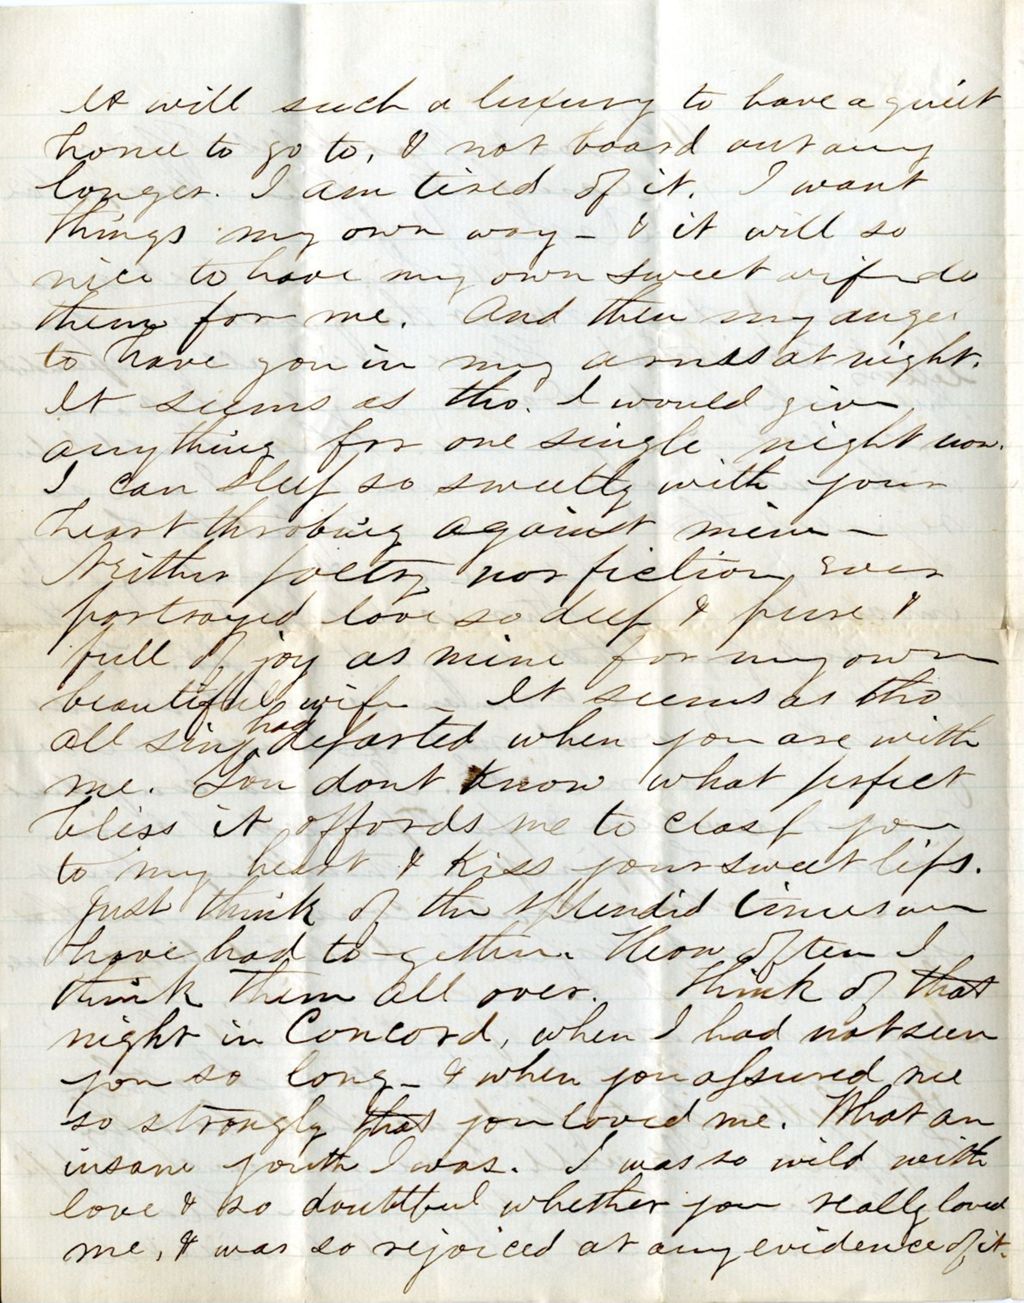 It will such a luxury to have a quiet
home to go to, & not board out any
longer. I am tired of it. I want
things my own way - & it will so
nice to have my own sweet wife do
them for me. And then my angel
to have you in my arms at night.
It seems as tho. I would give
anything for one single night now.
I can sleep so sweetly with your
heart throbing against mine -
Neither poetry nor fiction ever
portrayed love so deep & pure &
full of joy as mine for my own
beautiful wife - It seems as tho
all sin had departed when you are with
me. You dont know what perfect
bliss it affords me to clasp you
to my heart & kiss your sweet lips.
Just think of the splendid times we
have had to-gether. How often I
think them all over. Think of that
night in Concord, when I had not seen
you so long - & when you assured me
so strongly that you loved me. What an
insane youth I was. I was so wild with
love & so doubtful whether you really loved
me, & was so rejoiced at any evidence of it.